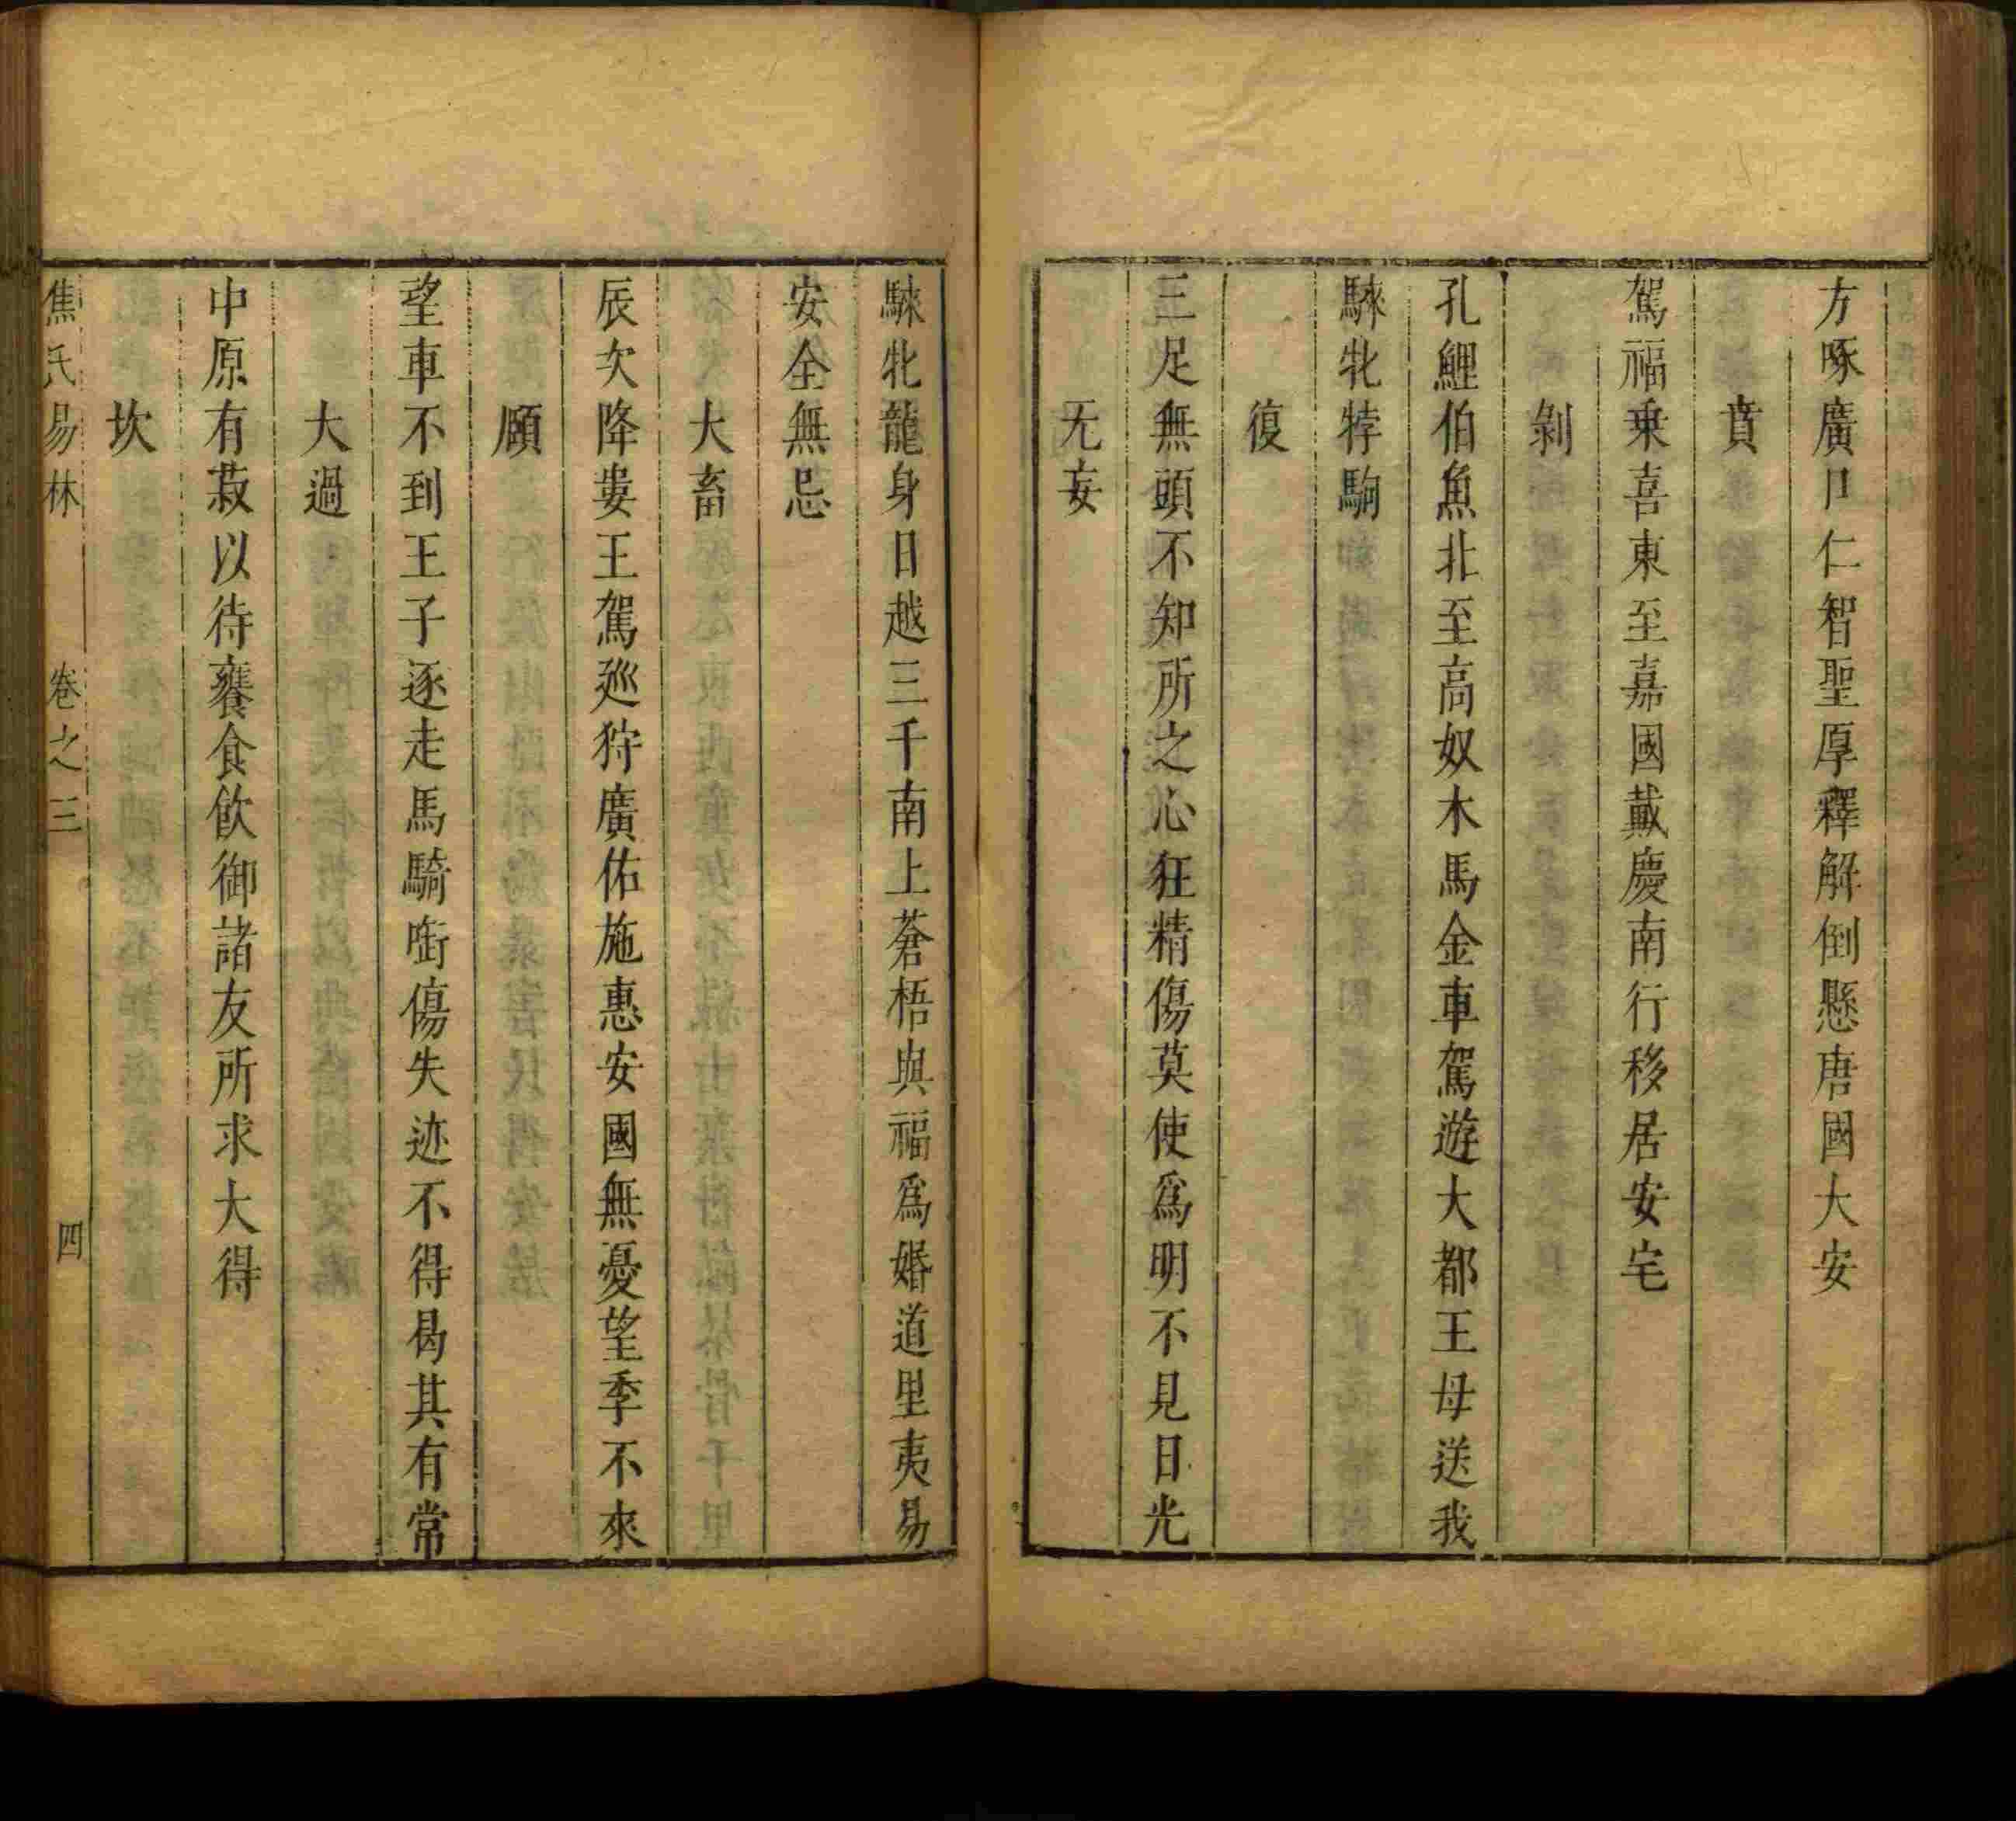 方啄廣口仁智聖厚釋解倒懸唐國大安
賁
駕福乗喜東至嘉國戴慶南行移居安宅
剝
孔鯉伯魚北至高奴木馬金車駕遊大都王母送我
騋牝牸駒
復
三足無頭不知所之心狂精傷莫使爲明不見日光
无妄
騋牝龍身日越三千南上蒼梧與福爲婚道里夷易
安全無忌
大畜
辰次降婁王駕廵狩廣佑施惠安國無憂望季不來
頤
望車不到王子逐走馬騎㗸傷失迹不得曷其有常
大過
中原有菽以待饔食飲御諸友所求大得
坎
焦氏易林 卷之三 四